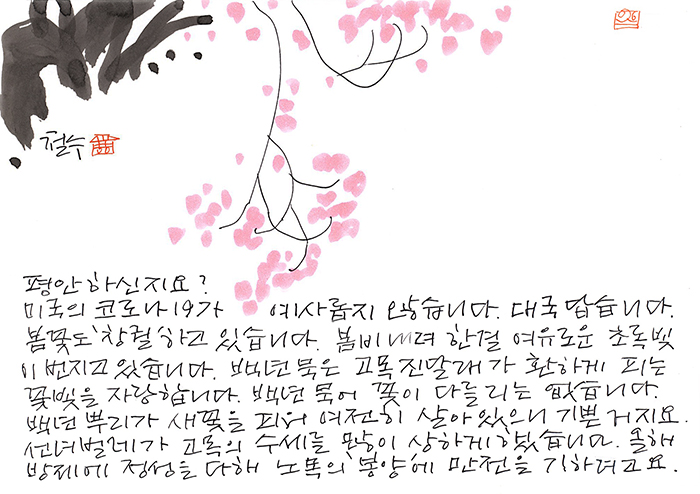 026
철수
평안하신지요?
미국의 코로나19가 예사롭지 않습니다. 대국 답습니다.
봄꽃도 '창궐'하고 있습니다. 봄비 내려 한결 여유로운 초록빛
이 번지고 있습니다. 백년 묵은 고목진달래가 환하게 피는
꽃빛을 자랑합니다. 백년 묵어 꽃이 다를리는 없습니다.
백년 뿌리가 새꽃을 피워 여전히 살아있으니 기쁜 거지요.
선녀벌레가 고목의 수세를 많이 상하게 했습니다. 올해
방제에 정성을 다해 노목의 '봉양'에 만전을 기하려고요.